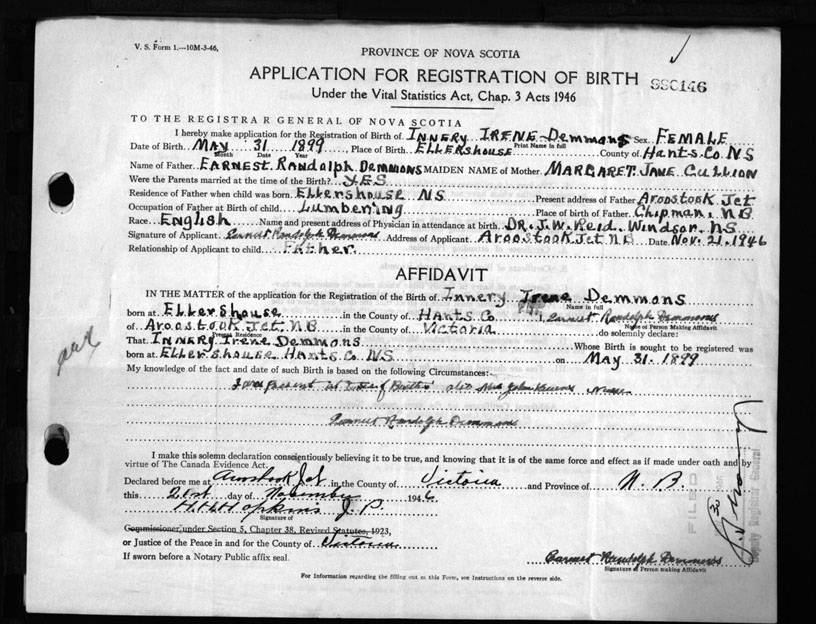 V. S. Form 1.—10M-3-46.
PROVINCE OF NOVA SCOTIA
APPLICATION FOR REGISTRATION OF BIRTH
Under the Vital Statistics Act, Chap. 3 Acts 1946
TO THE REGISTRAR GENERAL OF NOVA SCOTIA
I hereby make application for the Registration of Birth of INNERY IRENE Demmons Sex FEMALE
Print Name in full
Date of Birth MAY 31 1899 Place of Birth ELLERSHOUSE County of Hants. Co. NS
Month Date Year
Name of Father EARNEST. RANdolph DEMMONS MAIDEN NAME of Mother MARGARET. JANE CULLION
Were the Parents married at the time of the Birth? YES
Residence of Father when child was born Ellershouse NS Present address of Father Aroostook Jct
Occupation of Father at Birth of child Lumbening Place of birth of Father Chipman. N.B
Race English Name and present address of Physician in attendance at birth DR. J. W. Reid. Windsor. N.S
Signature of Applicant Earnest Randolph Demmons Address of Applicant Aroostook Jct N B Date Nov. 21. 1946
Relationship of Applicant to child Father.
AFFIDAVIT
IN THE MATTER of the application for the Registration of the Birth of Innery Irene Demmons
Name in full
born at Ellershouse in the County of Hants Co I, Earnest Randolph Demmons
Name of Person Making Affidavit
of Aroostook Jct. N.B in the County of Victoria do solemnly declare:
Present Residence
That Innery Irene Demmons Whose Birth is sought to be registered was
born at Ellershouse Hants. Co. N.S. on May 31. 1899
My knowledge of the fact and date of such Birth is based on the following Circumstances:
I was present at time of Birth also Mrs John Nurse
Earnest Randolph Demmons
I make this solemn declaration conscientiously believing it to be true, and knowing that it is of the same force and effect as if made under oath and by
virtue of The Canada Evidence Act.
Declared before me at Aroostook Jct in the County of Victoria and Province of N. B.
this 21st day of November 1946
H. H. Hopkins J. P.
Signature of
Commissioner, under Section 5, Chapter 38, Revised Statutes, 1923,
or Justice of the Peace in and for the County of Victoria
If sworn before a Notary Public affix seal.
Earnest Randolph Demmons
Signature of Person making Affidavit
For Information regarding the filling out of this Form, see Instructions on the reverse side.
FILED
Deputy Registrar General